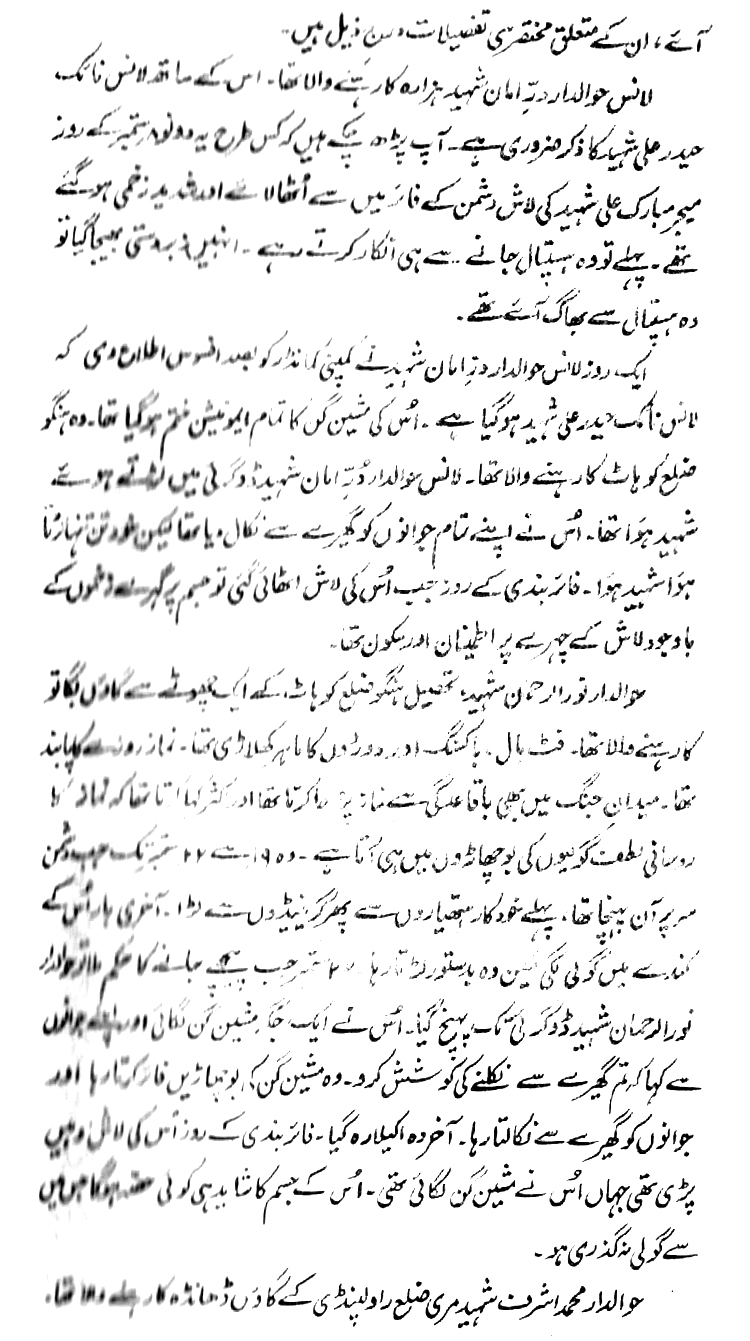 آئے، ان کے متعلق مختصر سی تفصیلات درج ذیل ہیں۔
لانس حوالدار درِّ امان شہید ہزارہ کا رہنے والا تھا۔ اس کے ساتھ لانس نائک
حیدر علی شہید کا ذکر ضروری ہے۔ آپ پڑھ چکے ہیں کہ کس طرح یہ دونوں ستمبر کے روز
میجر مبارک علی شہید کی لاش دشمن کے فائر میں سے اُٹھا لائے اور شدید زخمی ہو گئے
تھے۔ پہلے تو وہ ہسپتال جانے سے ہی انکار کرتے رہے۔ انہیں زبردستی بھیجا گیا تو
وہ ہسپتال سے بھاگ آئے تھے۔
ایک روز لانس حوالدار درِّ امان شہید نے کمپنی کمانڈر کو بصد افسوس اطلاع دی کہ
لانس نائک حیدر علی شہید ہو گیا ہے۔ اُس کی مشین گن کا تمام ایمونیشن ختم ہو گیا تھا۔ وہ ہنگو
ضلع کوہاٹ کا رہنے والا تھا۔ لانس حوالدار دُرِّ امان شہید ڈوگرئی میں لڑتے ہوئے
شہید ہوَا تھا۔ اُس نے اپنے تمام جوانوں کو گھیرے سے نکال دیا تھا لیکن خود تن تنہا لڑتا
ہوَا شہید ہوا۔ فائر بندی کے روز جب اُس کی لاش اٹھائی گئی تو جسم پر گہرے زخموں کے
باوجود لاش کے چہرے پر اطمینان اور سکون تھا۔
حوالدار نور الرحمان شہید، تحصیل ہنگو ضلع کوہاٹ کے ایک چھوٹے سے گاؤں
کا رہنے والا تھا۔ فٹ بال۔ باکسنگ اور دوڑوں کا ماہر کھلاڑی تھا۔ نماز روزے کا پابند
تھا۔ میدانِ جنگ میں بھی باقاعدگی سے نماز پڑھا کرتا تھا اور اکثر کہا کرتا تھا کہ نماز کا
روحانی لطف گولیوں کی بوچھاڑوں میں ہی آتا ہے۔ وہ ۱۹ سے ۲۲ ستمبر تک جب دشمن
سر پر آن پہنچا تھا، پہلے خود کار ہتھیاروں سے پھر گرنیڈوں سے لڑا۔ آخری بار اُس کے
کندھے میں گولی لگی لیکن وہ بدستور لڑتا رہا۔ ستمبر جب پیچھے جانے کا حکم ملا تو حوالدار
نور الرحمان شہید ڈوگرئی تک پہنچ گیا۔ اُس نے ایک جگہ مشین گن لگائی اور اپنے جوانوں
سے کہا کہ تم گھیرے سے نکلنے کی کوشش کرو۔ وہ مشین گن کی بوچھاڑیں فائر کرتا رہا اور
جوانوں کو گھیرے سے نکالتا رہا۔ آخر وہ اکیلا رہ گیا۔ فائر بندی کے روز اُس کی لاش وہیں
پڑی تھی جہاں اُس نے مشین گن لگائی تھی۔ اُس کے جسم کا شاید ہی کوئی حصہ ہوگا جس میں
سے گولی نہ گذری ہو۔
حوالدار محمد اشرف شہید مری ضلع راولپنڈی کے گاؤں ڈھانڈہ کا رہنے والا تھا۔